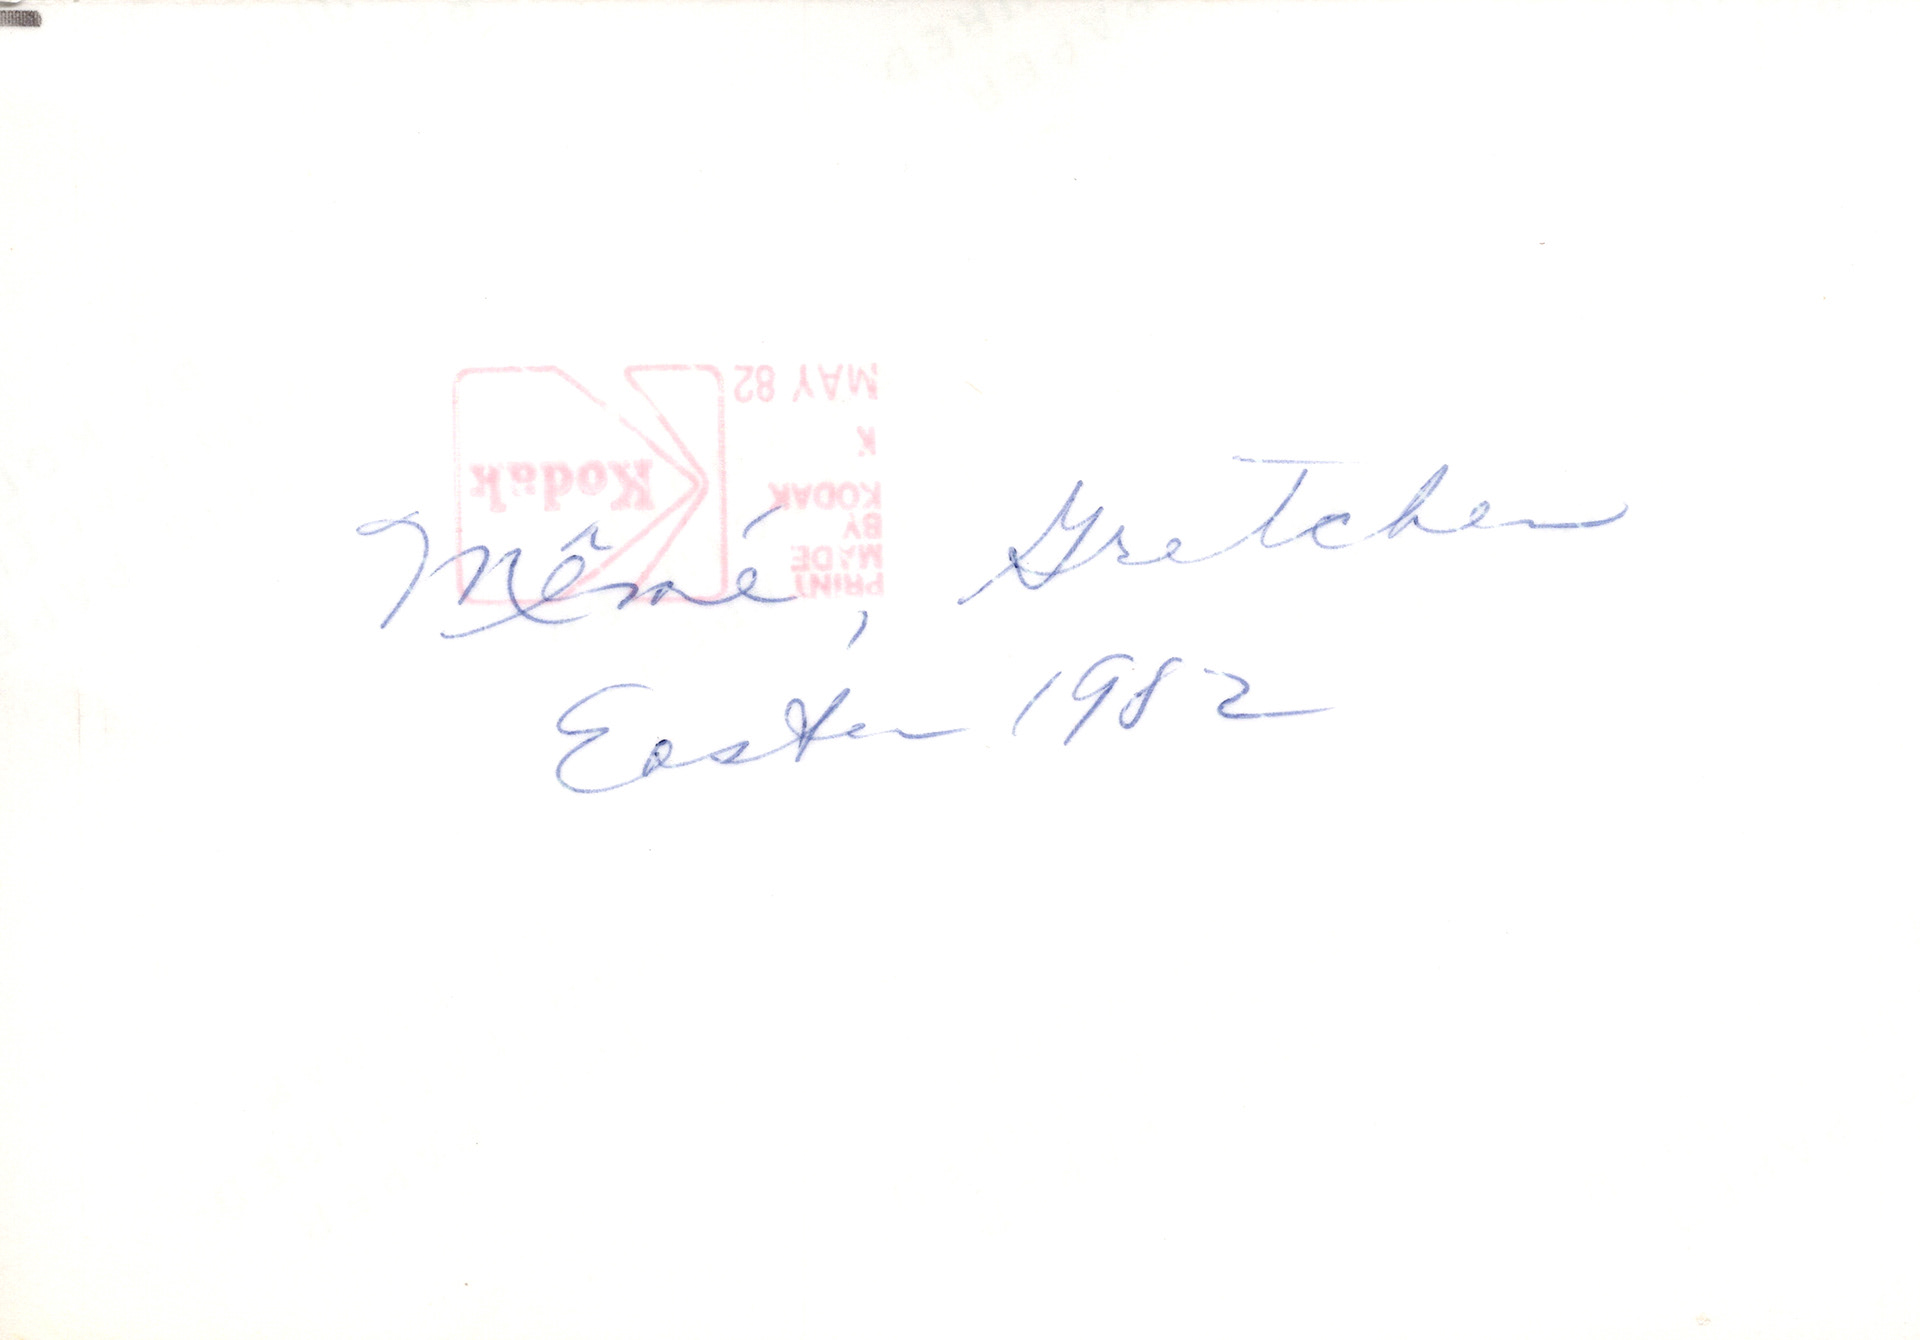 Mêmé, Gretchen
Easter 1982
PRINT
MADE
BY
KODAK
K
MAY 82
Kodak